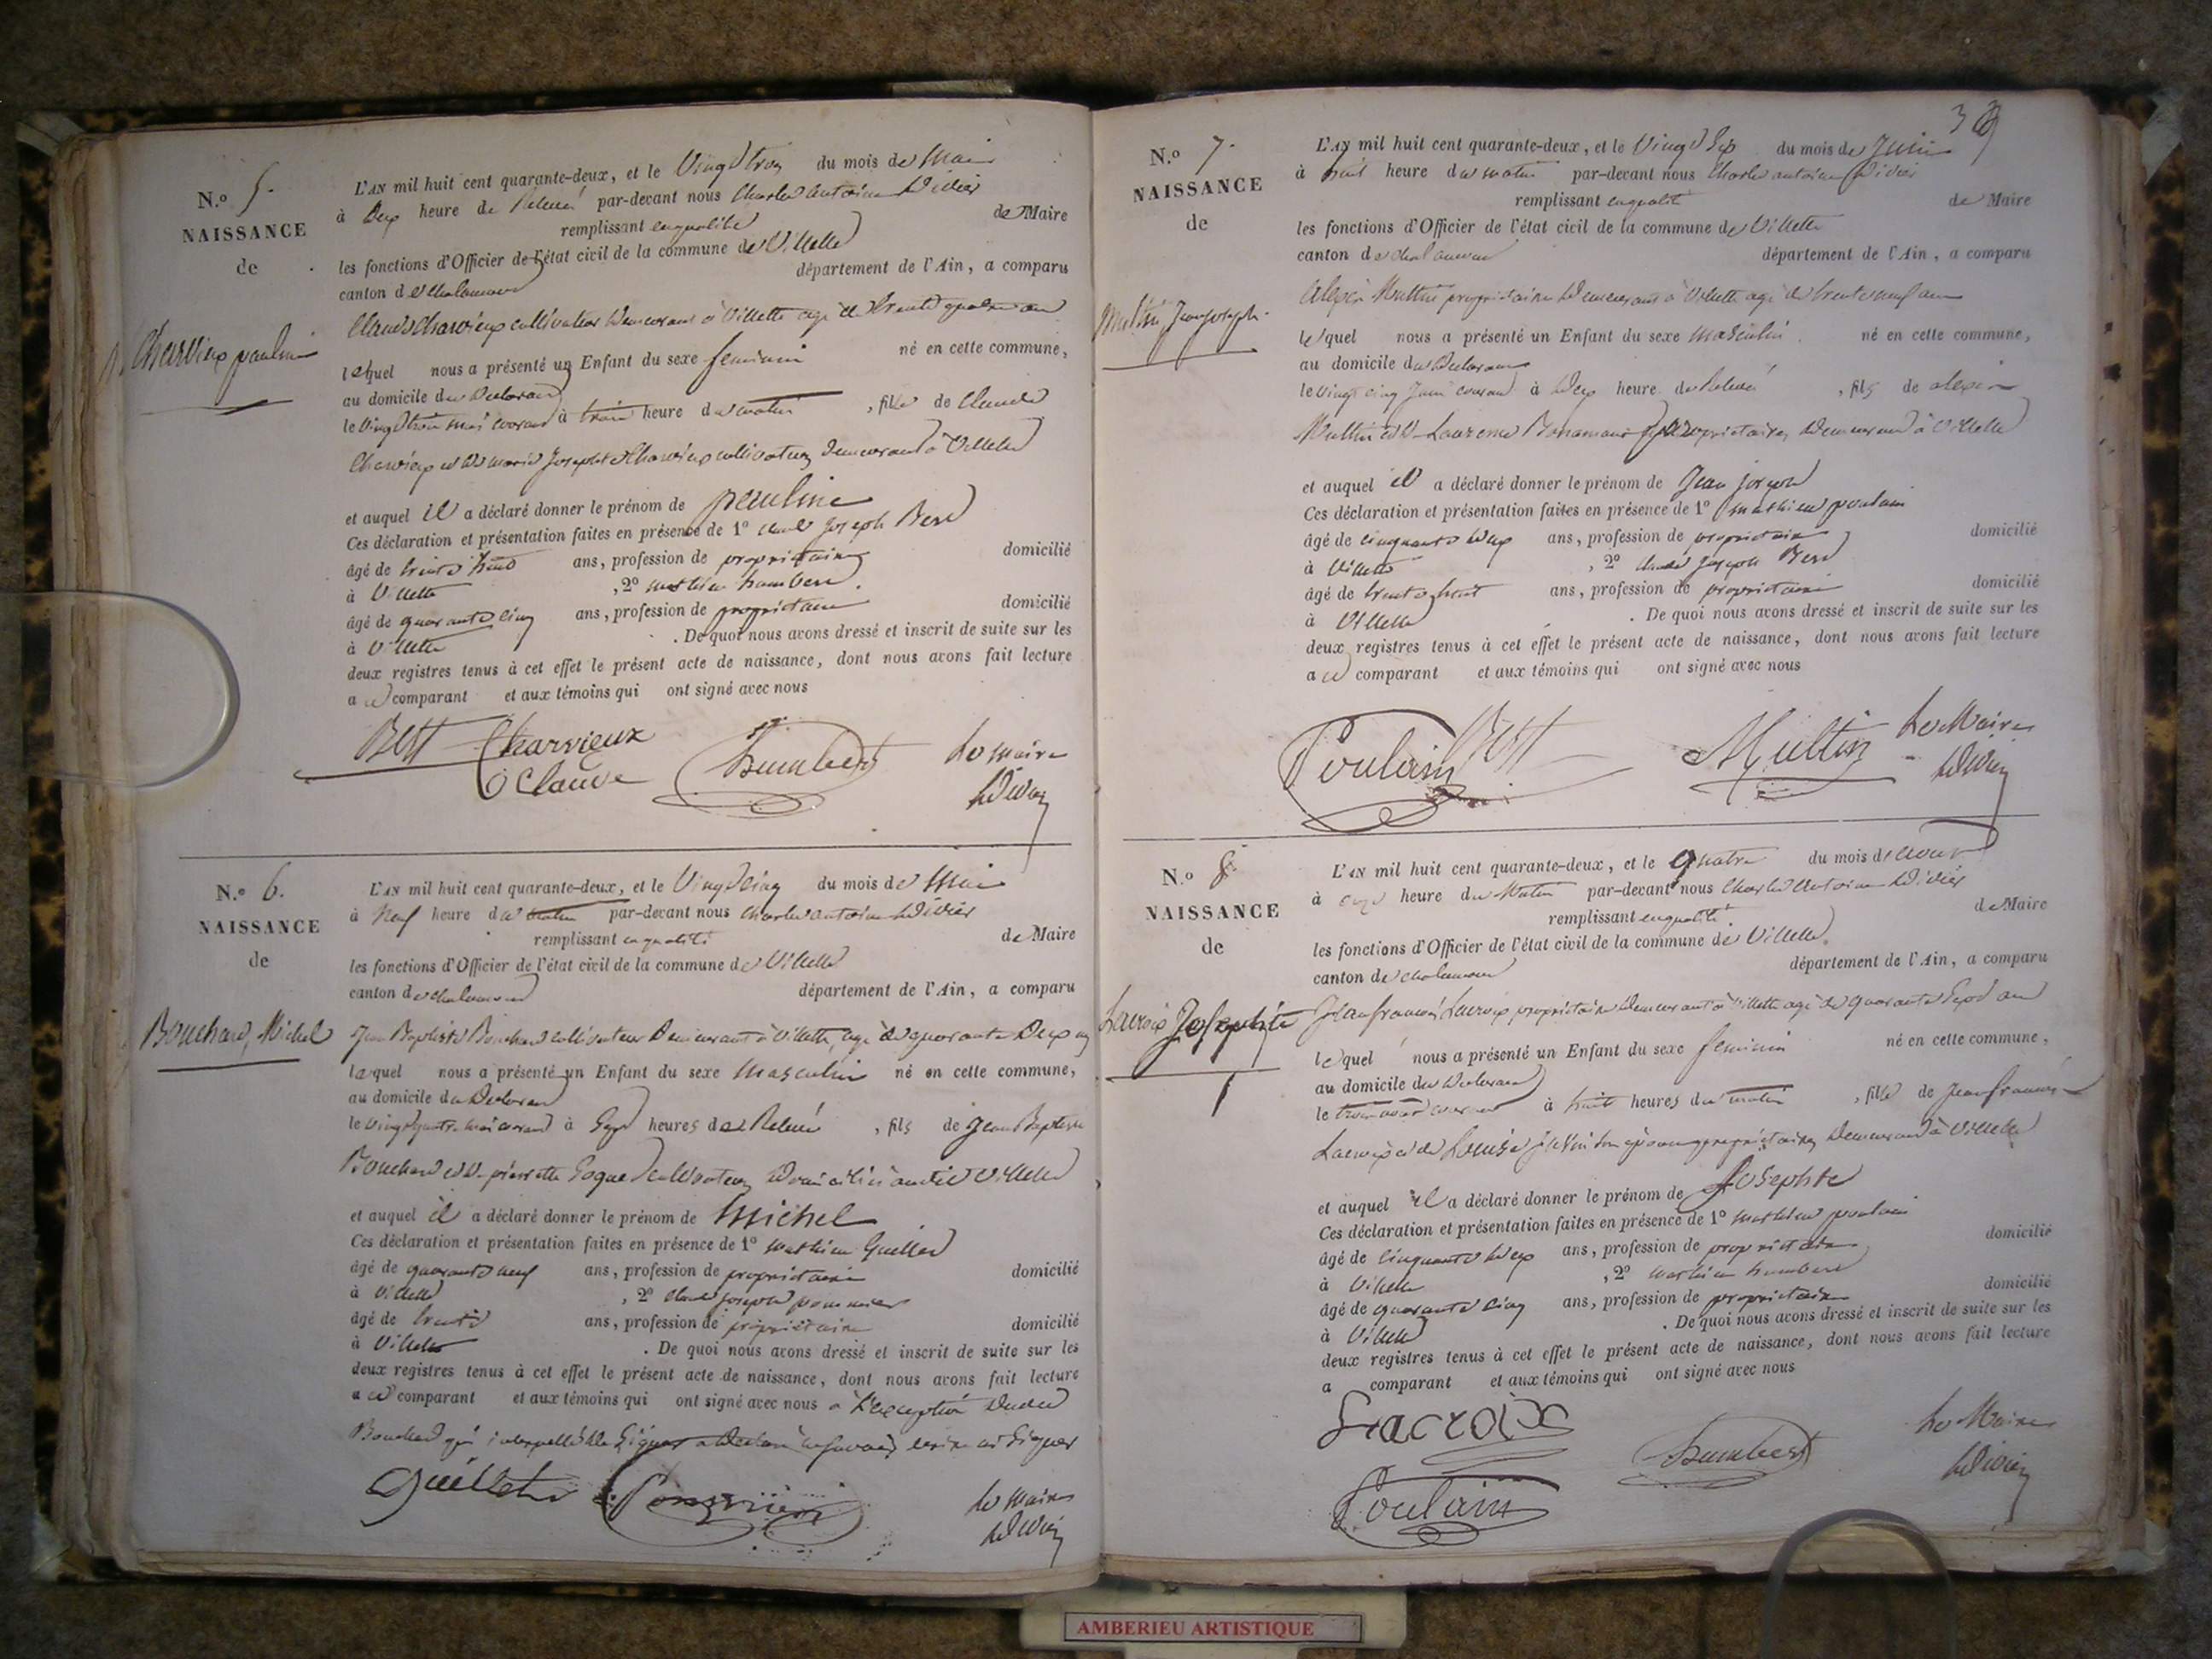 N.º 5.
NAISSANCE
de
Charvieux pauline
L'AN mil huit cent quarante-deux, et le Vingt trois du mois de Mai
à Deux heure de Relevé par-devant nous Charles antoine Didier
remplissant en qualité de Maire
les fonctions d'Officier de l'état civil de la commune de Villette
canton de Chalamont département de l'Ain, a comparu
Claude Charvieux cultivateur Demeurant à Villette agé de trente quatre ans
lequel nous a présenté un Enfant du sexe feminin né en cette commune,
au domicile du Declarant
le Vingt trois mai courant à trois heure du matin, fille de Claude
Charvieux et de marie Josephte Charvieux cultivateurs demeurant à Villette
et auquel il a déclaré donner le prénom de pauline
Ces déclaration et présentation faites en présence de 1º claude Joseph Best
âgé de trente huit ans, profession de propriétaire domicilié
à Villette, 2º mathieu humbert
âgé de quarante cinq ans, profession de propriétaire domicilié
à Villette. De quoi nous avons dressé et inscrit de suite sur les
deux registres tenus à cet effet le présent acte de naissance, dont nous avons fait lecture
a comparant et aux témoins qui ont signé avec nous
Best Charvieux Claude humbert Le Maire
Didier
N.º 6.
NAISSANCE
de
Bouchard, Michel
L'AN mil huit cent quarante-deux, et le Vingt cinq du mois de Mai
à Neuf heure du matin par-devant nous Charles antoine Didier
remplissant en qualité de Maire
les fonctions d'Officier de l'état civil de la commune de Villette
canton de chalamont département de l'Ain, a comparu
Jean Baptiste Bouchard cultivateur Demeurant à Villette, agé de quarante Deux ans
lequel nous a présenté un Enfant du sexe Masculin né en cette commune,
au domicile du Declarant
le vingt quatre mai courant à Sept heures de Relevé, fils de Jean Baptiste
Bouchard et de pierrette cultivateurs Domiciliés audit Villette
et auquel il a déclaré donner le prénom de Michel
Ces déclaration et présentation faites en présence de 1º mathieu Guillet
âgé de quarante neuf ans, profession de propriétaire domicilié
à Villette, 2º claude joseph pommier
âgé de trente ans, profession de propriétaire domicilié
à Villette. De quoi nous avons dressé et inscrit de suite sur les
deux registres tenus à cet effet le présent acte de naissance, dont nous avons fait lecture
a comparant et aux témoins qui ont signé avec nous à L'exception dudit
Bouchard qui interpellé de Signer a Declaré ne savoir écrire ni Signer
Guillet Pommier Le Maire
Didier
38
N.º 7.
NAISSANCE
de
Multin Jean joseph
L'AN mil huit cent quarante-deux, et le Vingt Six du mois de Juin
à huit heure du matin par-devant nous Charles antoine Didier
remplissant en qualité de Maire
les fonctions d'Officier de l'état civil de la commune de Villette
canton de chalamont département de l'Ain, a comparu
Alexis Multin propriétaire Demeurant à Villette agé de trente neuf ans
lequel nous a présenté un Enfant du sexe masculin né en cette commune,
au domicile du Declarant
le vingt cinq Juin courant à Deux heure de Relevé, fils de alexis
Multin et de Laurence propriétaires demeurant à Villette
et auquel il a déclaré donner le prénom de Jean joseph
Ces déclaration et présentation faites en présence de 1º mathieu poulain
âgé de cinquante deux ans, profession de propriétaire domicilié
à Villette, 2º claude Joseph Best
âgé de trente huit ans, profession de propriétaire domicilié
à Villette. De quoi nous avons dressé et inscrit de suite sur les
deux registres tenus à cet effet le présent acte de naissance, dont nous avons fait lecture
a comparant et aux témoins qui ont signé avec nous
Poulain Best Multin Le Maire
Didier
N.º 8.
NAISSANCE
de
Lacroix Josephte
1
L'AN mil huit cent quarante-deux, et le quatre du mois d'aout
à onze heure du Matin par-devant nous Charles Antoine Didier
remplissant en qualité de Maire
les fonctions d'Officier de l'état civil de la commune de Villette
canton de chalamont département de l'Ain, a comparu
Jean françois Lacroix propriétaire demeurant à Villette agé de quarante Sept ans
lequel nous a présenté un Enfant du sexe feminin né en cette commune,
au domicile du Declarant
le trois aout courant à huit heures du matin, fille de Jean françois
Lacroix et de Louise propriétaires Demeurant à Villette
et auquel il a déclaré donner le prénom de Josephte
Ces déclaration et présentation faites en présence de 1º mathieu poulain
âgé de cinquante deux ans, profession de propriétaire domicilié
à Villette, 2º mathieu humbert
âgé de quarante cinq ans, profession de propriétaire domicilié
à Villette. De quoi nous avons dressé et inscrit de suite sur les
deux registres tenus à cet effet le présent acte de naissance, dont nous avons fait lecture
a comparant et aux témoins qui ont signé avec nous
Lacroix humbert Le Maire
Poulain Didier
AMBERIEU ARTISTIQUE